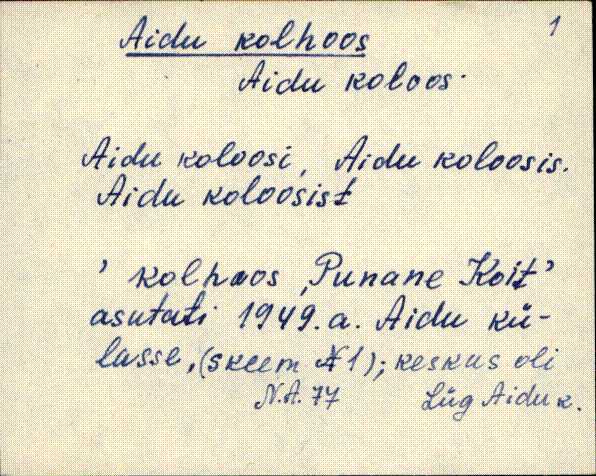 1
Aidu kolhoos
Aidu koloos.
Aidu koloosi, Aidu koloosis.
Aidu koloosist
' kolhoos „Punane Koit'
asutati 1949. a. Aidu kü-
lasse, (skeem № 1); keskus oli
N.A. 77 Lüg Aidu k.